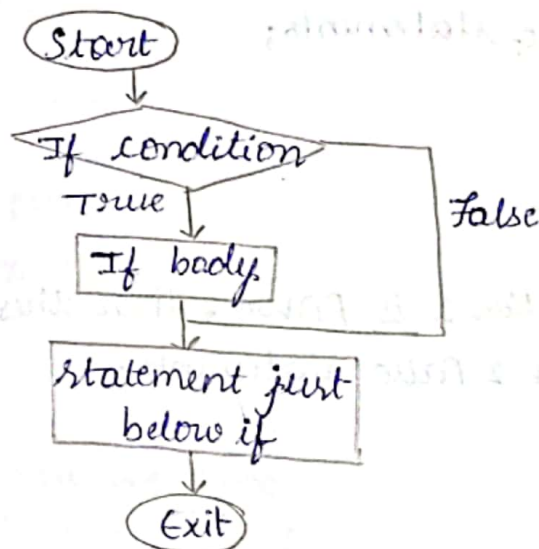 Start
If condition
True
False
If body
statement just
below if
Exit